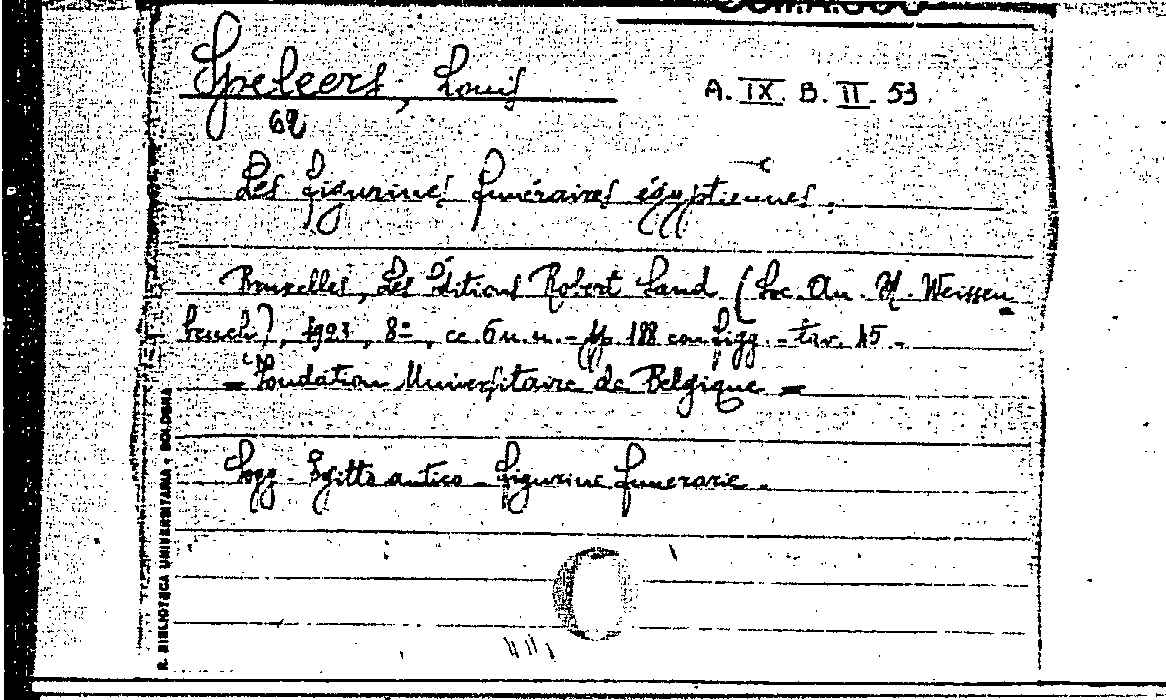 Speleers, Louis
A. IX. B. II. 53
62
Les figurines funéraires égyptiennes.
Bruxelles, Les Éditions Robert Sand (Soc. An. M. Weissen
bruch), 1923, 8º, cc 6 n.n. - pp. 188 con figg. - tav. 45 -
= Fondation Universitaire de Belgique =
Sogg. Egitto antico - figurine funerarie.
R. BIBLIOTECA UNIVERSITARIA - BOLOGNA